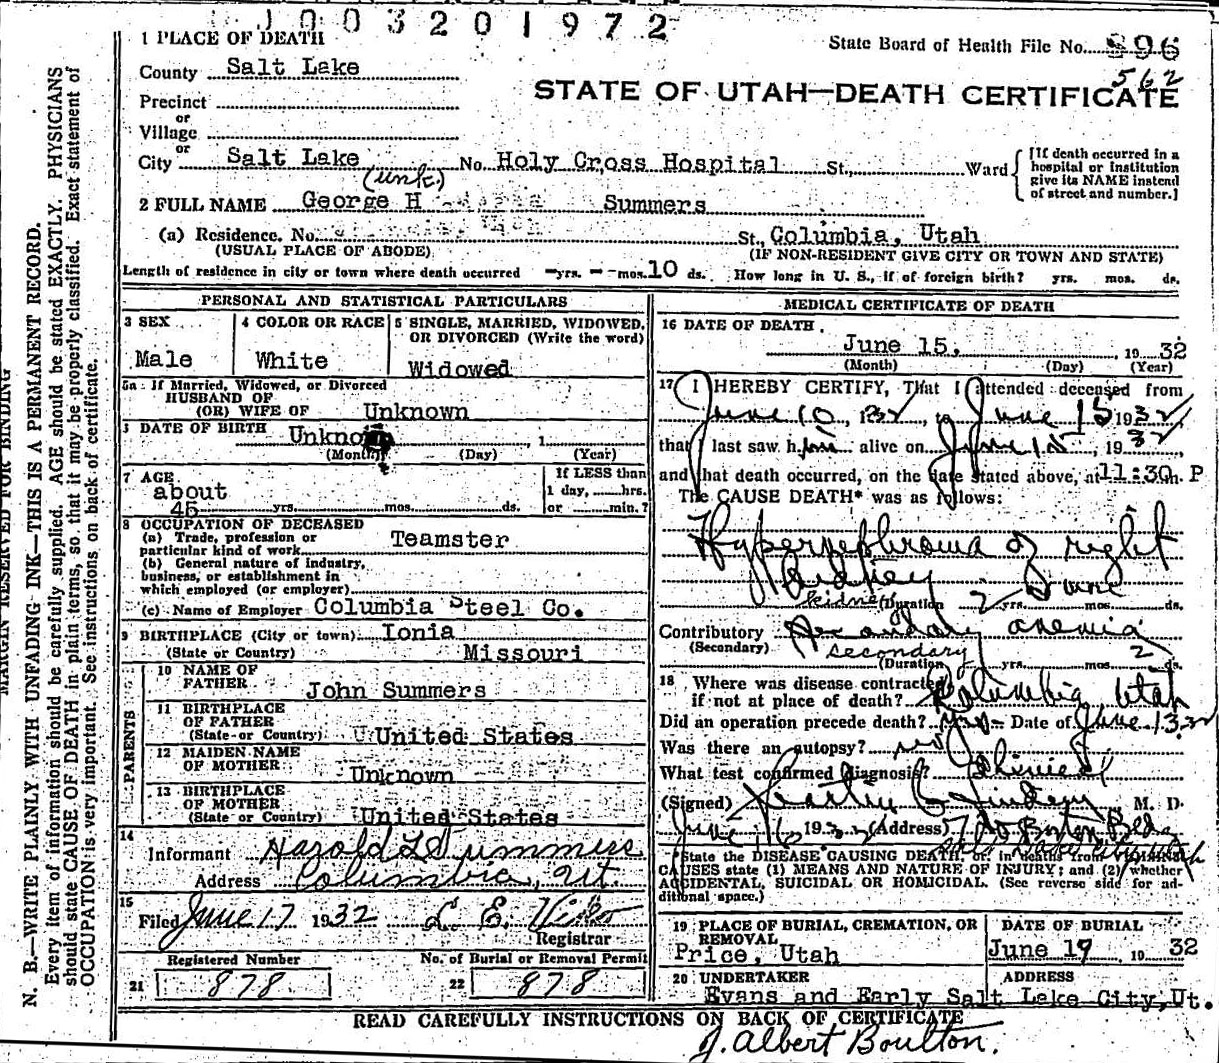 1003201972
1 PLACE OF DEATH
State Board of Health File No. 896
County Salt Lake
562
STATE OF UTAH—DEATH CERTIFICATE
Precinct
or
Village
or
City Salt Lake No. Holy Cross Hospital St., Ward
[If death occurred in a
hospital or institution
give its NAME instead
of street and number.]
(unk.)
2 FULL NAME George H Summers
(a) Residence. No. St., Columbia, Utah
(USUAL PLACE OF ABODE) (IF NON-RESIDENT GIVE CITY OR TOWN AND STATE)
Length of residence in city or town where death occurred - yrs. - mos. 10 ds. How long in U. S., if of foreign birth? yrs. mos. ds.
PERSONAL AND STATISTICAL PARTICULARS
3 SEX
Male
4 COLOR OR RACE
White
5 SINGLE, MARRIED, WIDOWED,
OR DIVORCED (Write the word)
Widowed
5a If Married, Widowed, or Divorced
HUSBAND OF
(OR) WIFE OF Unknown
DATE OF BIRTH Unknown, 1
(Month) (Day) (Year)
7 AGE
about
45 yrs. mos. ds.
If LESS than
1 day, hrs.
or min.?
8 OCCUPATION OF DECEASED
(a) Trade, profession or
particular kind of work Teamster
(b) General nature of industry,
business, or establishment in
which employed (or employer)
(c) Name of Employer Columbia Steel Co.
9 BIRTHPLACE (City or town) Ionia
(State or Country) Missouri
PARENTS
10 NAME OF
FATHER John Summers
11 BIRTHPLACE
OF FATHER
(State or Country) United States
12 MAIDEN NAME
OF MOTHER Unknown
13 BIRTHPLACE
OF MOTHER
(State or Country) United States
14
Informant Harold L Summers
Address Columbia, Ut.
15
Filed June 17 1932 L. E.
Registrar
Registered Number
21 878
No. of Burial or Removal Permit
22 878
MEDICAL CERTIFICATE OF DEATH
16 DATE OF DEATH
June 15, 19 32
(Month) (Day) (Year)
17 I HEREBY CERTIFY, That I attended deceased from
June 10, 1932, to June 15 1932
that I last saw him alive on June 15, 1932
and that death occurred, on the date stated above, at 11:30 m. P
The CAUSE DEATH* was as follows:
Hypernephroma of right
Kidney
kidney (Duration 2 yrs. mos. ds.
Contributory Secondary anemia
(Secondary) secondary
(Duration yrs. mos 2 ds.
18 Where was disease contracted
if not at place of death? Columbia Utah
Did an operation precede death? yes Date of June 13 32
Was there an autopsy? no
What test confirmed diagnosis? Clinical
(Signed) M. D.
June 16 1932 (Address) 720 Boston Bldg
Salt Lake City Utah
*State the DISEASE CAUSING DEATH, or, in deaths from VIOLENT
CAUSES state (1) MEANS AND NATURE OF INJURY; and (2) whether
ACCIDENTAL, SUICIDAL OR HOMICIDAL. (See reverse side for ad-
ditional space.)
19 PLACE OF BURIAL, CREMATION, OR
REMOVAL
Price, Utah
DATE OF BURIAL
June 19, 19 32
20 UNDERTAKER ADDRESS
Evans and Early Salt Lake City, Ut.
READ CAREFULLY INSTRUCTIONS ON BACK OF CERTIFICATE
J. Albert Boulton.
MARGIN RESERVED FOR BINDING
N. B.—WRITE PLAINLY WITH UNFADING INK—THIS IS A PERMANENT RECORD.
Every item of information should be carefully supplied. AGE should be stated EXACTLY. PHYSICIANS
should state CAUSE OF DEATH in plain terms, so that it may be properly classified. Exact statement of
OCCUPATION is very important. See instructions on back of certificate.